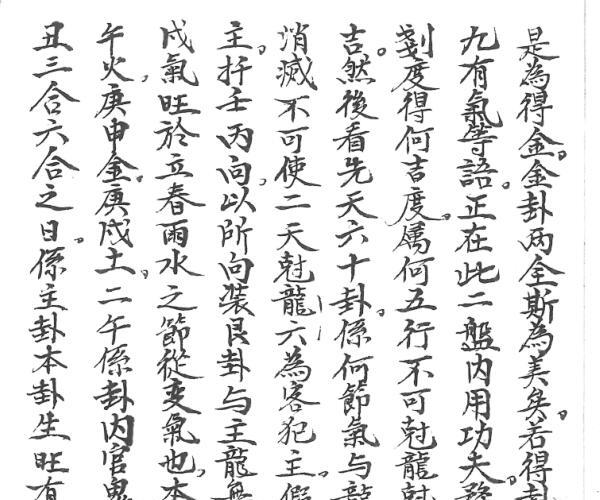 是為得金。金卦两全斯為美矣。若得卦
九有氣等語。正在此二盤内用功夫。
剗度得何吉度。屬何五行不可尅龍
吉。然後看先天六十卦。係何節氣与龍
消滅不可使二天尅龍六為客犯主。假
主。扦壬丙向。以所向装艮卦与主龍無
戍氣旺於立春雨水之節從变氣也。本
午火。庚申金。庚戍土。二午係卦内官鬼
丑三合六合之日。係主卦本卦生旺有